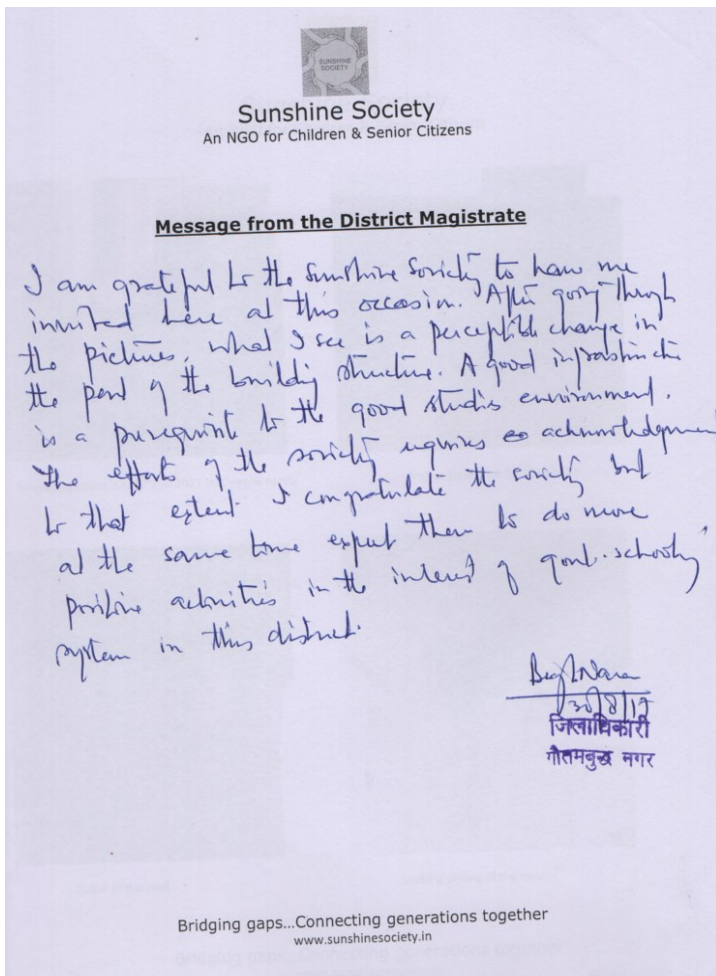 SUNSHINE
SOCIETY
Sunshine Society
An NGO for Children & Senior Citizens
Message from the District Magistrate
I am grateful to the Sunshine Society to have me
invited here at this occasion. After going through
the pictures, what I see is a perceptible change in
the part of the building structure. A good infrastructure
is a prerequisite to the good studies environment.
The efforts of the society requires acknowledgement
to that extent I congratulate the society but
at the same time expect them to do more
positive activities in the interest of govt. schooling
system in this district.
30/8/17
जिलाधिकारी
गौतमबुद्ध नगर
Bridging gaps...Connecting generations together
www.sunshinesociety.in